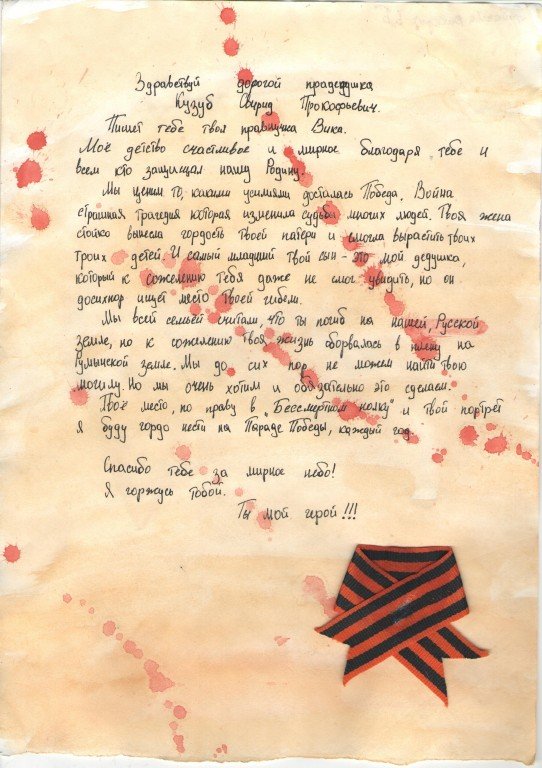 Здравствуй дорогой прадедушка
Кузуб Свирид Прокофьевич.
Пишет тебе твоя правнучка Вика.
Моё детство счастливое и мирное благодаря тебе и
всем кто защищал нашу Родину.
Мы ценим то, какими усилиями досталась Победа. Война
страшная трагедия которая изменила судьбы многих людей. Твоя жена
стойко вынесла гордость твоей потери и смогла вырастить твоих
троих детей. И самый младший твой сын - это мой дедушка,
который к сожелению тебя даже не смог увидить, но он
досихпор ищет место твоей гибели.
Мы всей семьёй считали, что ты погиб на нашей, Русской
земле, но к сожелению твоя жизнь оборвалась в плену на
румынской земле. Мы до сих пор не можем найти твою
могилу. Но мы очень хотим и обязательно это сделаем.
Твоё место, по праву в "Бессмертном полку" и твой портрет
я буду гордо нести на Параде Победы, каждый год.
Спасибо тебе за мирное небо!
Я горжусь тобой.
Ты мой герой!!!